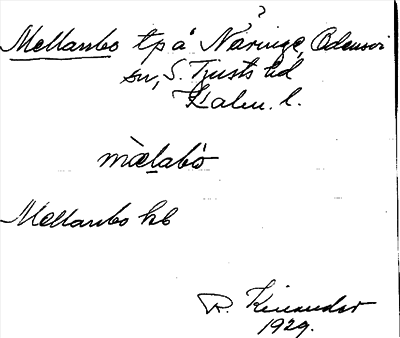 Mellanbo tp å Näringe, Odensvi
sn, S. Tjusts hd
Kalm. l.
mæ̀labò
Mellanbo kb
R. Kinander
1929.